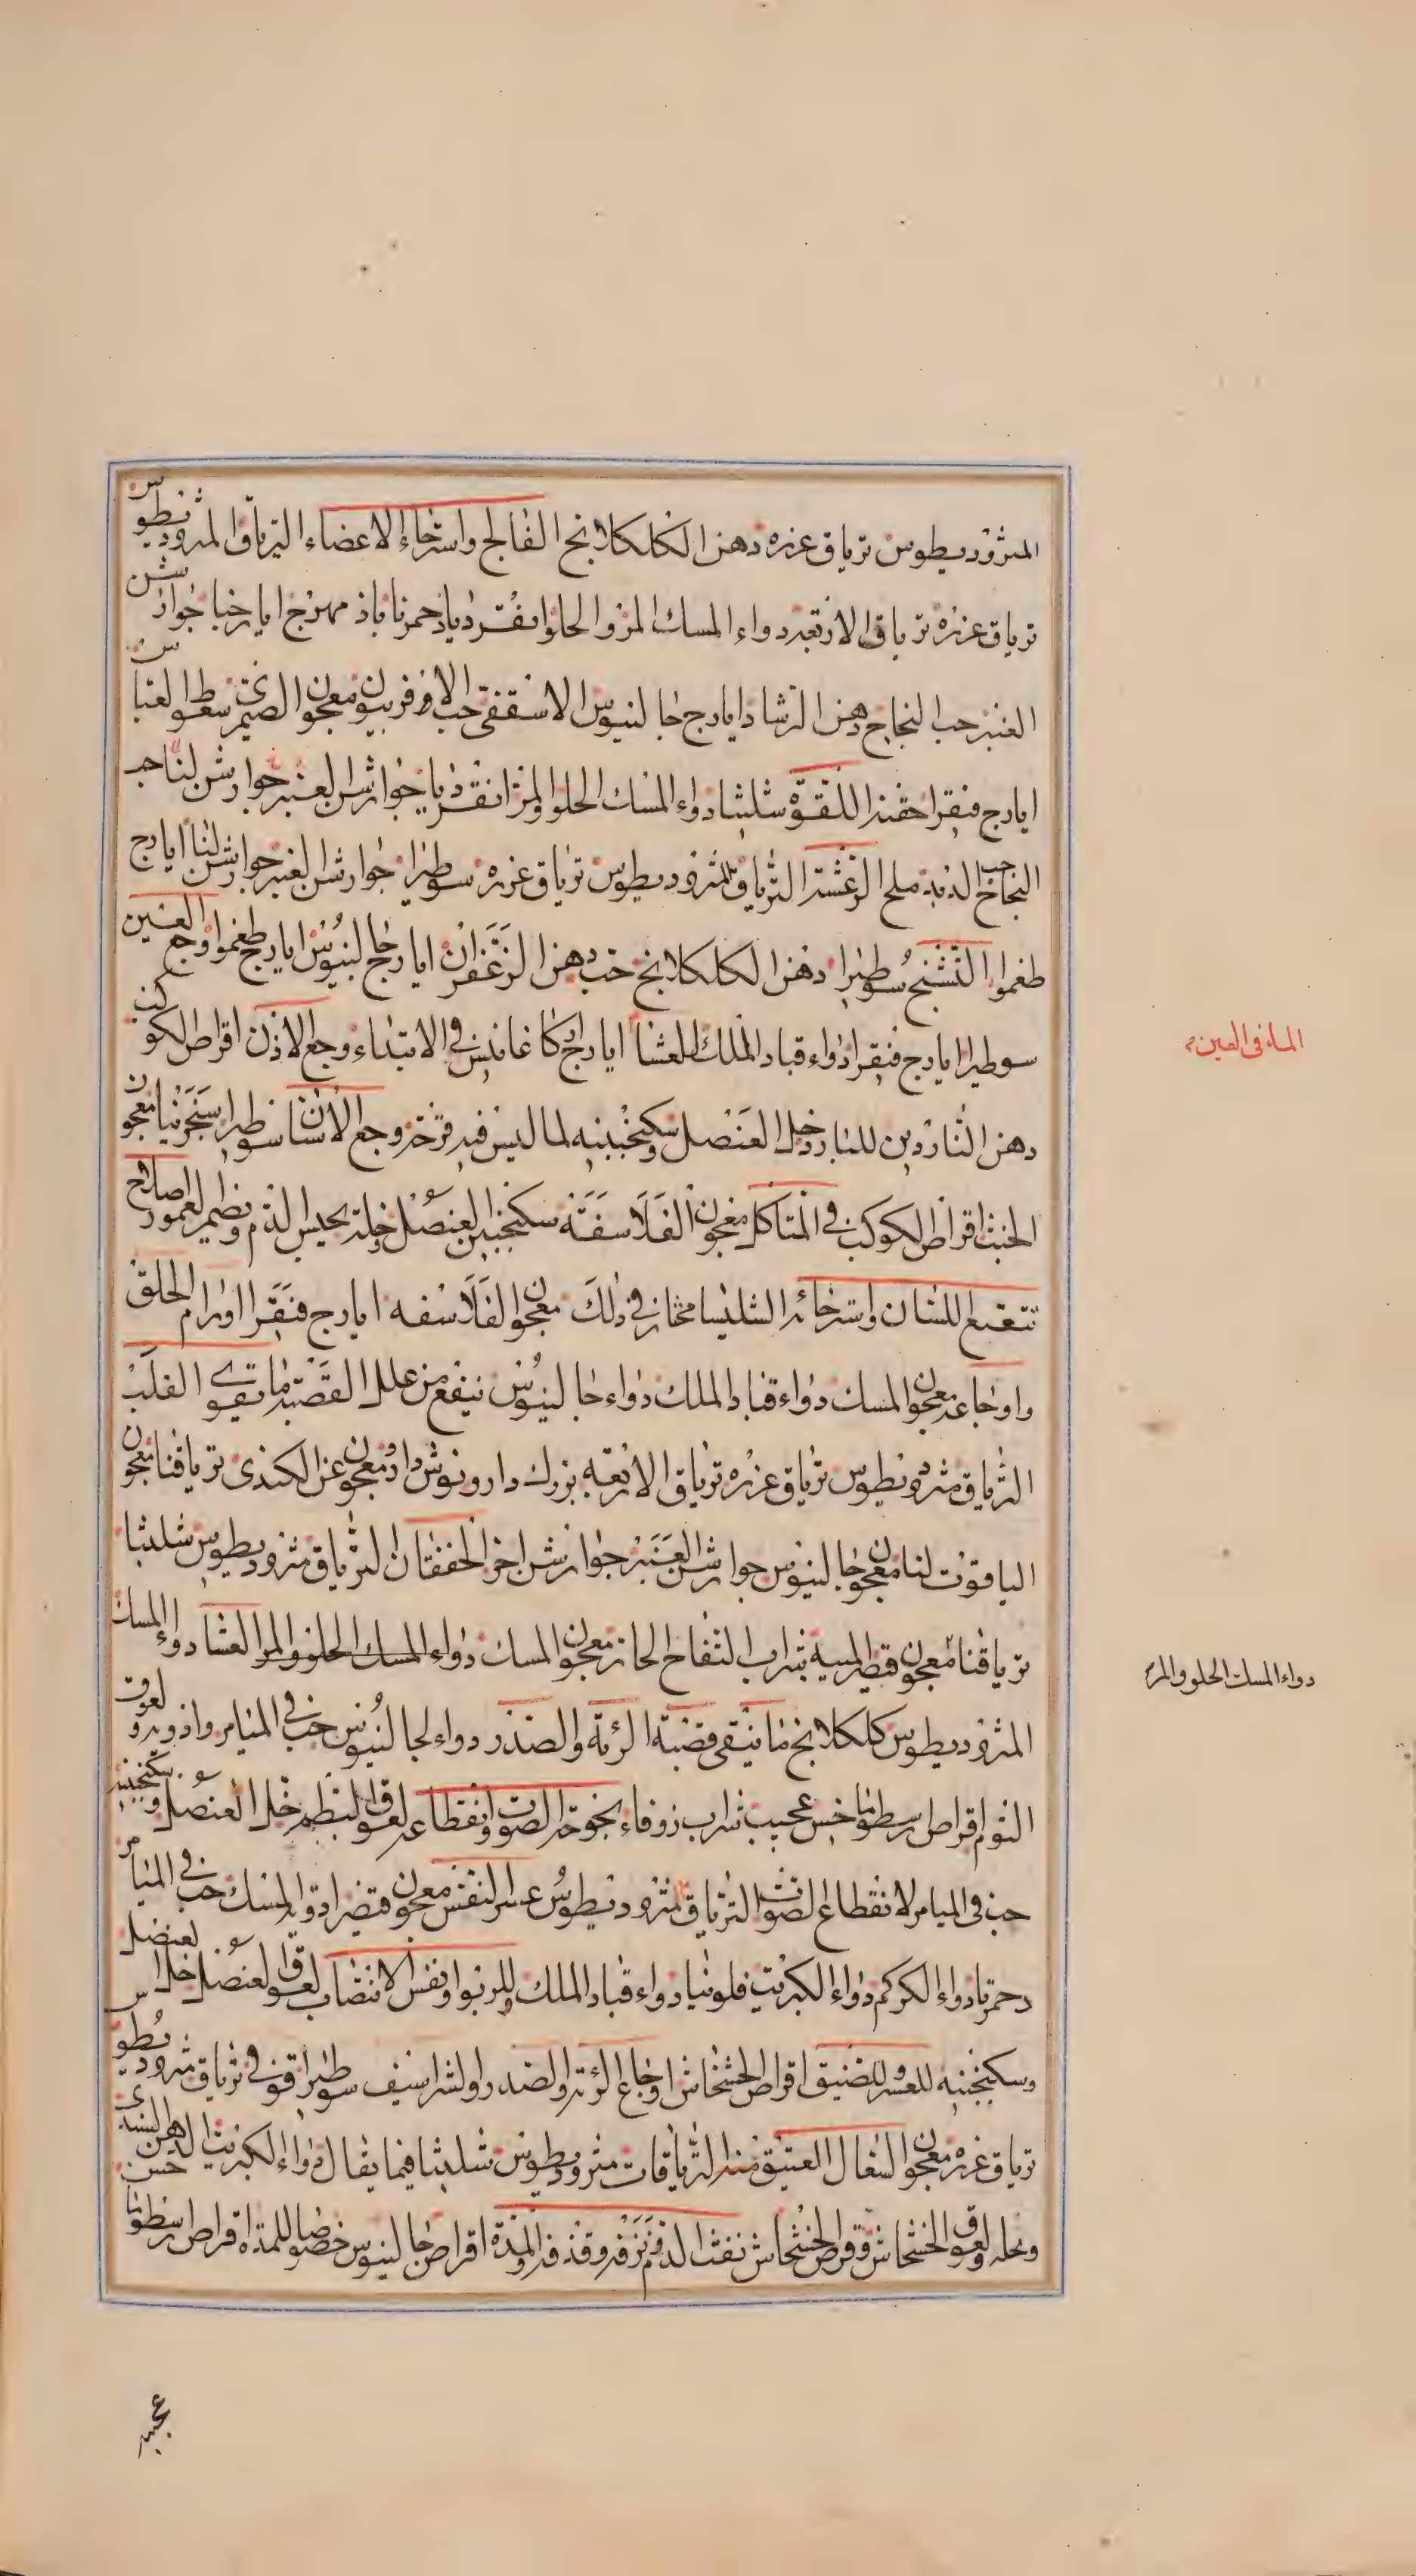 المثروديطوس ترياق عزره دهن الكلكلانج الفالج واسترخاء الاعضاء الترياق المثروديطوس
ترياق عزره ترياق الاربعة دواء المسك المر والحلو انقرديا ذحمرنا باذ مهرج ايارخنا جوارشن
العنبر حب النجاح دهن الرشاد ايارج جالينوس الاسقفى حب الافربيون معجون الصيمرى سعوط العباس
ايارج فيقرا حقنة اللقوة شلشا دواء المسك الحلو والمر انقرديا جوارشن العنبر جوارشن لنا حب
النجاح الدبد ملح الرعشة الترياق المثروديطوس ترياق عزره سوطيرا جوارشن العنبر جوارشن لنا ايارج
طغموا التشنج سوطيرا دهن الكلكلانج حب دهن الزعفران ايارج جالينوس ايارج طغموا وجع العين
سوطيرا ايارج فيقرا دواء قباد الملك للعشا ايارج كاغانيس فى الابتداء وجع الاذن اقراص الكوكب
دهن الناردين للبارد خل العنصل وسكنجبينه لما ليس فيه قرحة وجع الاسنان سوطيرا سنجرنيا معجون
الخبث اقراص الكوكب فى المتاكل معجون الفلاسفة سكنجبين العنصل وخله يحبس الدم ويضمر العمور اصلاح
تتعتع اللسان واسترخائه الشليسا مختار فى ذلك معجون الفلاسفه ايارج فيقرا اورام الحلق
واوجاعه معجون المسك دواء قباد الملك دواء جالينوس ينفع من علل القصبة ما يقوى القلب
الترياق مثروديطوس ترياق عزره ترياق الاربعه بزرك دارو نوش دارو معجون عن الكندى ترياقنا معجون
الياقوت لنا معجون جالينوس جوارشن العنبر جوارشن اخر الخفقان الترياق مثروديطوس شليثا
ترياقنا معجون قيصر الميبة شراب التفاح الحار معجون المسك دواء المسك الحلو والمر العشا دواء المسك
المثروديطوس كلكلانج ما ينقى قصبة الرئة والصدر دواء لجالينوس حب فى الميامر واذويه ولعوق
الثوم اقراص ارسطوماخس عجيب شراب زوفاء بحوحة الصوت وانقطاعه لعوق البطم خل العنصل وسكنجبينه
حب فى الميامر لانقطاع الصوت الترياق مثروديطوس عسر النفس معجون قيصر ادوية المسك حب فى الميامر
دحمرتا دواء الكركم دواء الكبريت فلونيا دواء قباد الملك وللربو ونفس الانتصاب لعوق العنصل خل العنصل
وسكنجبينه للعسر والضيق اقراص الخشخاش اوجاع الرئة والصدر والشراسيف سوطيرا قوفى ترياق مثروديطوس
ترياق عزره معجون السعال العتيق منه الترياقات مثروديطوس شليثا فيما يقال دواء الكبريت الدهن الهندى حسن
ونحله ولعوق الخشخاش وقرص الخشخاش نفث الدم نزفه وقذفه والمدة اقراص جالينوس خصوصا للمدة اقراص ارسطوما
الماء فى العين
دواء المسك الحلو والمر
عجيبة